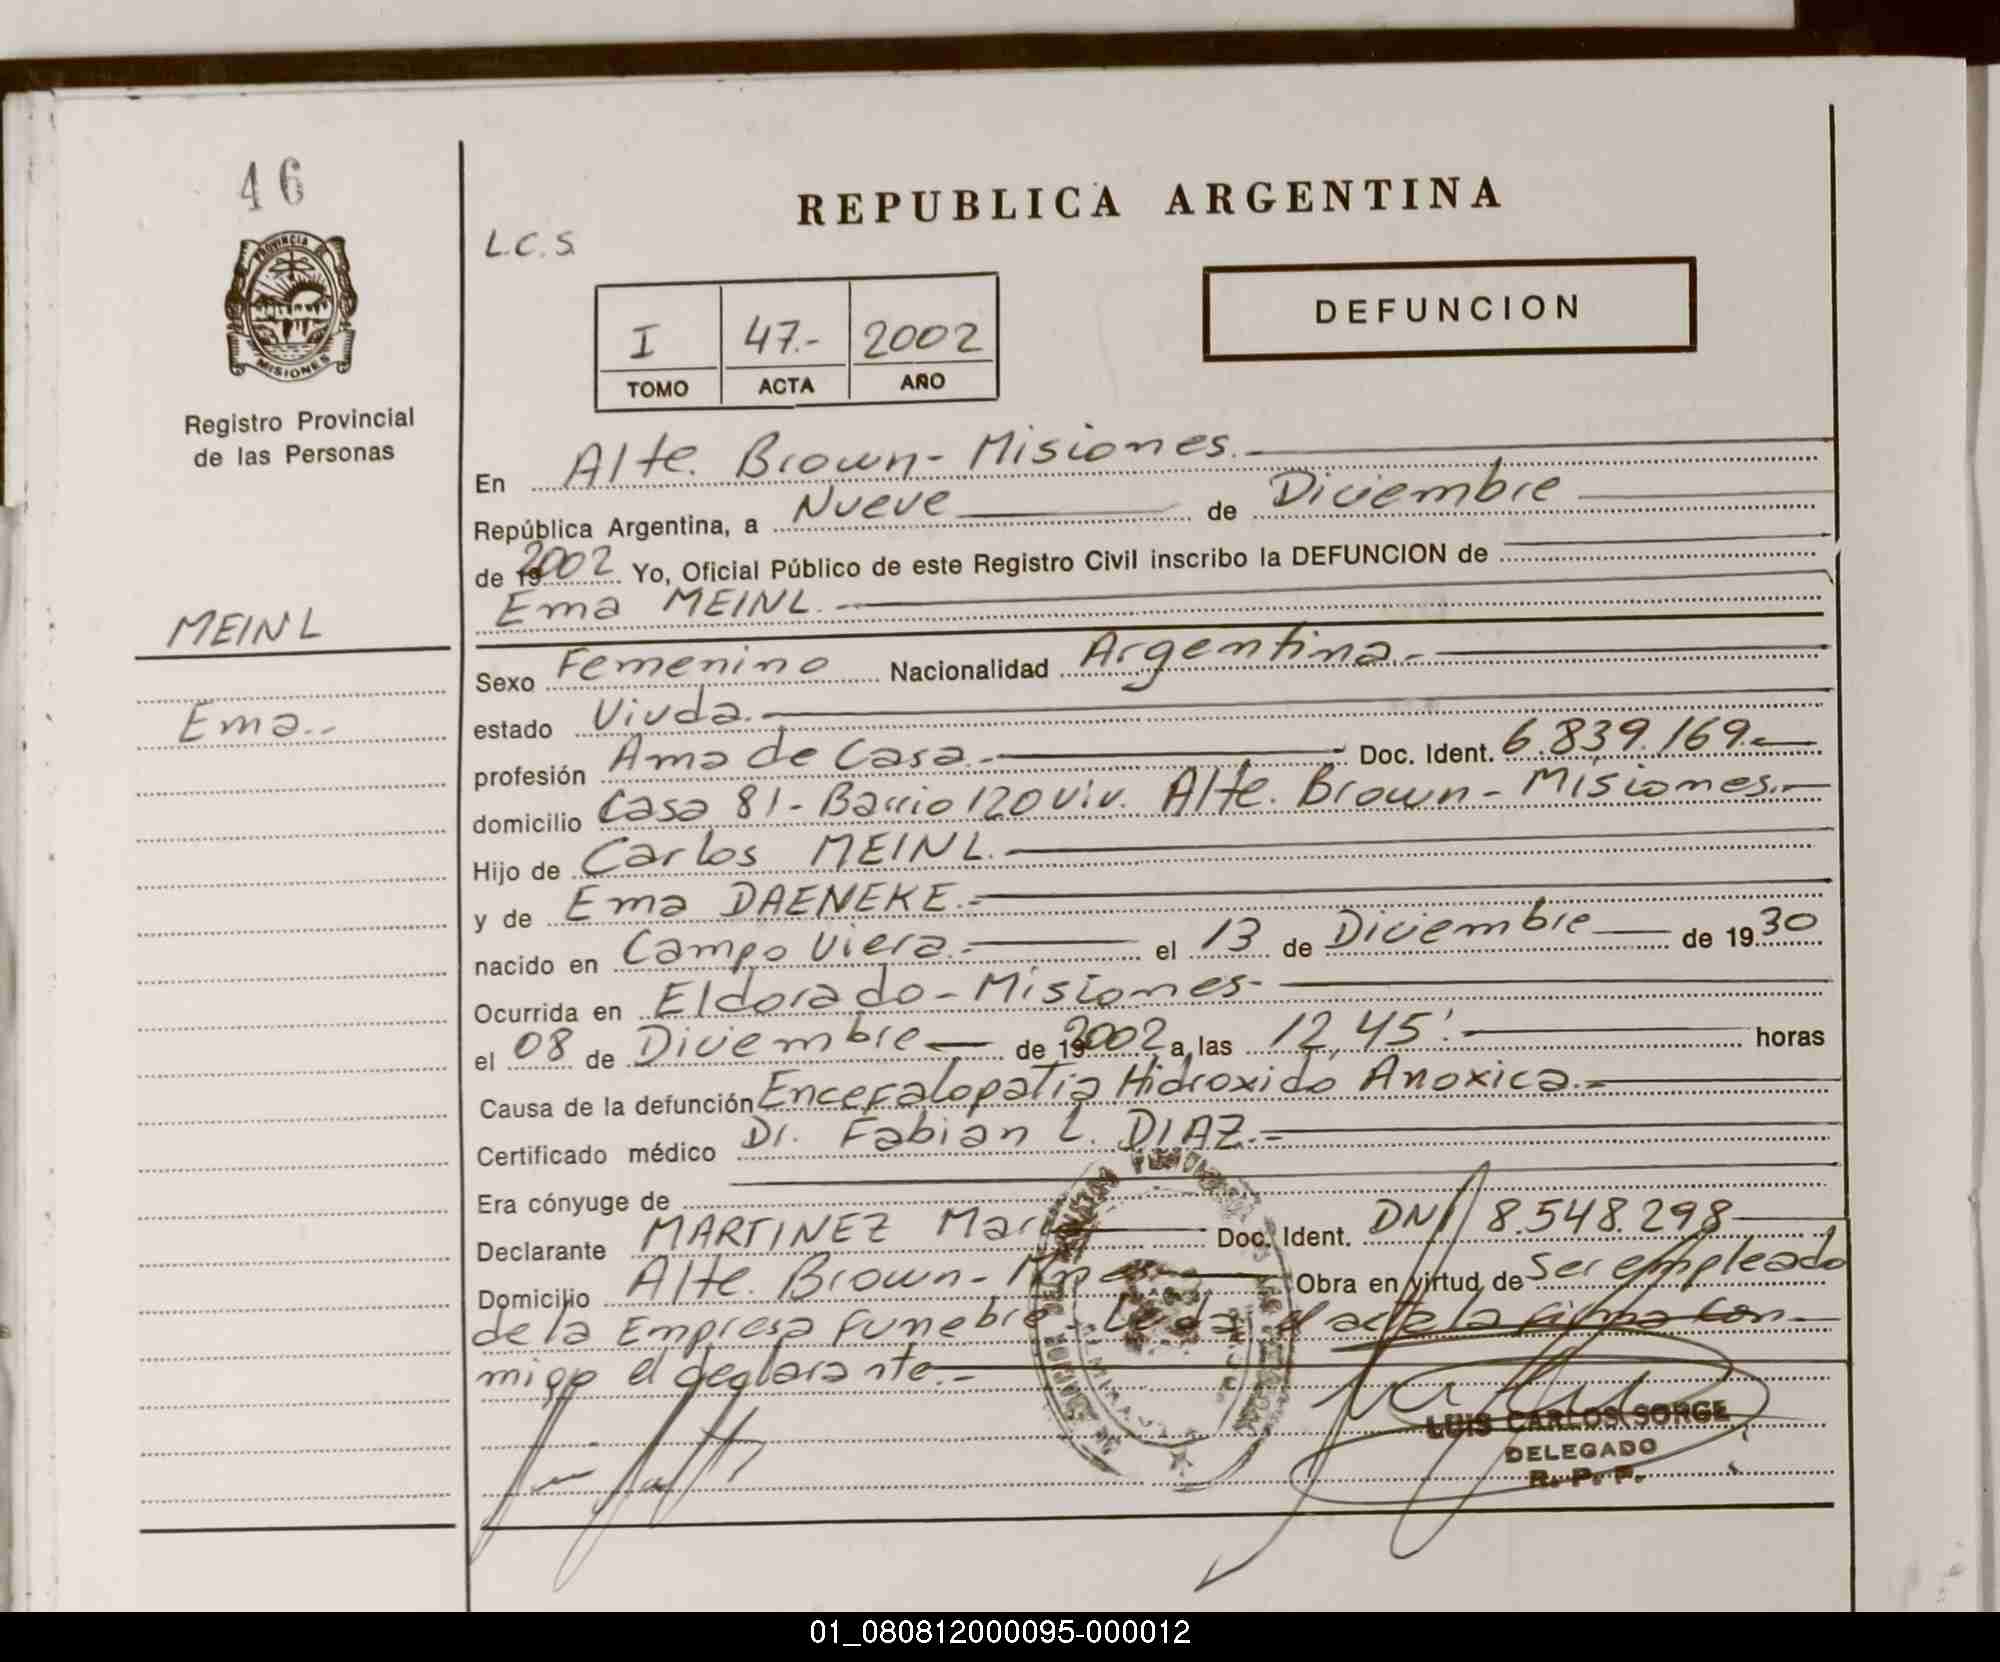 46
PROVINCIA DE
MISIONES
Registro Provincial
de las Personas
MEINL
Ema.-
REPUBLICA ARGENTINA
L.C.S.
DEFUNCION
I 47.- 2002
TOMO ACTA AÑO
En Alte. Brown - Misiones.
República Argentina, a Nueve de Diciembre
de 19 2002 Yo, Oficial Público de este Registro Civil inscribo la DEFUNCION de
Ema MEINL.
Sexo Femenino Nacionalidad Argentina.-
estado Viuda.-
profesión Ama de Casa.- Doc. Ident. 6.839.169.-
domicilio Casa 81 - Barrio 120 viv. Alte. Brown - Misiones.-
Hijo de Carlos MEINL.
y de Ema DAENEKE.-
nacido en Campo Viera.- el 13 de Diciembre de 1930
Ocurrida en Eldorado - Misiones-
el 08 de Diciembre de 19 2002 a las 12,45'.- horas
Causa de la defunción Encefalopatia Hidroxido Anoxica.-
Certificado médico Dr. Fabian L. DIAZ.-
Era cónyuge de
Declarante MARTINEZ Doc. Ident. DNI 8.548.298
Domicilio Alte. Brown - Mnes Obra en virtud de Ser empleado
de la Empresa Funebre. Leida el acta la firma con-
migo el declarante.-
LUIS CARLOS SORGE
DELEGADO
R. P. P.
01_080812000095-000012